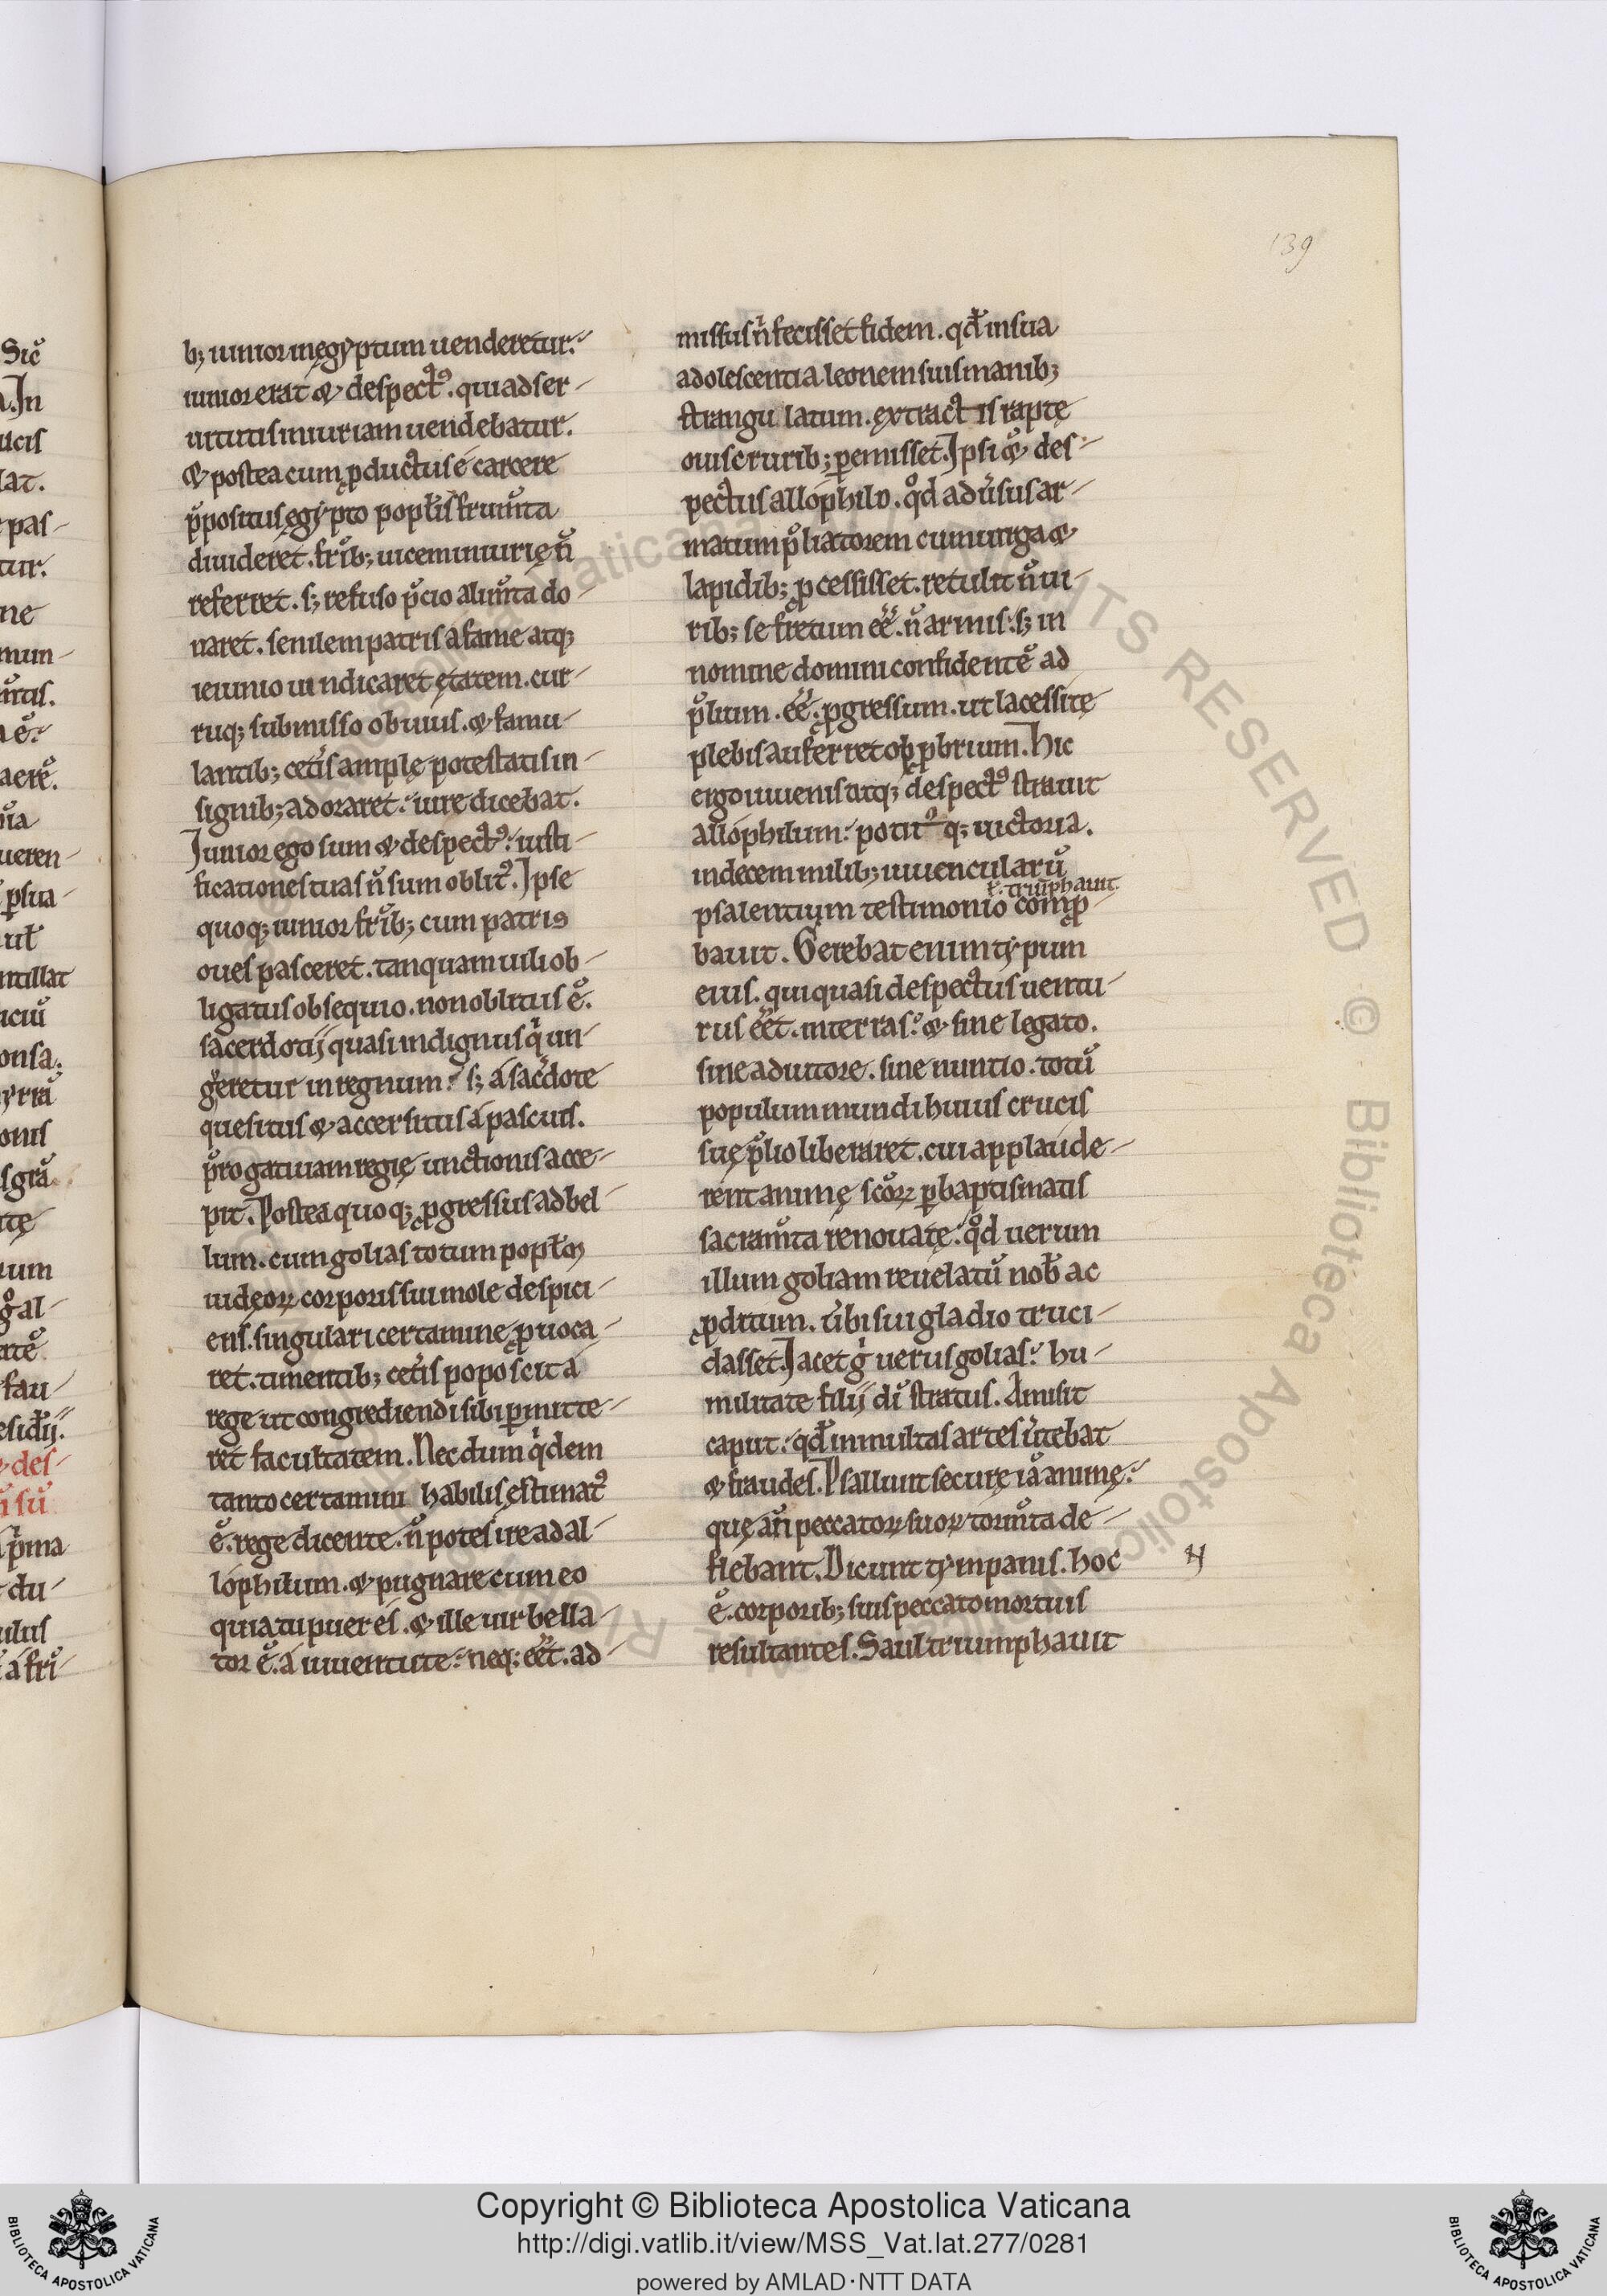 139
b; iunior in ęgyptum uenderetur.
iunior erat & despectꝰ. qui ad ser-
uitutis iniuriam uendebatur.
& postea cum ꝓductus é carcere
p̄positus ęgypto popłis frum̄ta
diuideret. fr̄ib; uicem iniurię n̄
referret. s; refuso p̄cio alim̄ta do-
naret. senilem patris a fame atq;
ieiunio uindicaret ętatem. cur-
ruq; submisso obuius. & famu-
lantib; cet̄is amplę potestatis in-
signib; adoraret. iure dicebat.
Iunior ego sum & despectꝰ. iusti-
ficationes tuas n̄ sum oblitꝰ. Ipse
quoq; iunior fr̄ib; cum patris
oues pasceret. tanquam uili ob-
ligatus obsequio. non oblitus ē.
sacerdotij quasi indignus q̇ un-
geretur in regnum. s; á sac̄dote
quesitus & accersitus á pascuis.
p̄rogatiuam regię unctionis acce-
pit. Postea quoq; ꝓgressus ad bel-
lum. cum golias totum popłm
iudęoꝝ corporis sui mole despici-
ens. singulari certamine ꝓuoca-
ret. timentib; cet̄is poposcit á
rege ut congrediendi sibi ꝑmitte-
ret facultatem. Nec dum q̇dem
tanto certamini habilis ęstimatꝰ
ē. rege dicente. n̄ potes ire ad al-
lóphilum. & pugnare cum eo
quia tu puer és. & ille uir bella-
tor ē. á iuuentute. neq; eēt. ad-
missus n̄ fecisset fidem. qđ in sua
adolescentia leonem suis manib;
strangulatum. extractis raptę
ouis crurib; ꝑemisset. Ipsi & des-
pectus allóphilo. qd̊ adūsus ar-
matum p̄liatorem cum uirga &
lapidib; ꝓcessisset. retulit n̄ ui-
rib; se fretum eē̄. n̄ armis. s; in
nomine domini confidentē ad
p̄lium. eē̄. ꝓgressum. ut lacessitę
plebis auferret obꝓbrium. Hic
ergo iuuenis atq; despectꝰ strauit
allóphilum. potitꝰq; uictoria.
in decem milib; iuuencularū
ł. triūphauit.
psalentium testimonio comꝓ-
bauit. Gerebat enim typum
eius. qui quasi despectus uentu-
rus eēt. in terras. & sine legato.
sine adiutore. sine nuntio. totū
populum mundi huius crucis
suę p̄lio liberaret. cui applaude-
rent animę scōꝝ ꝑ baptismatis
sacram̄ta renouatę. qd̊ uerum
illum goliam reuelatū nob̄ ac
ꝓditum. ūbi sui gladio truci-
dasset. Iacet g̊ uerus golias. hu-
militate filij dī stratus. Amisit
caput. qđ in multas artes ūtebat
& fraudes. Psallunt secure iā animę.
quę an̄ peccatoꝝ suoꝝ torm̄ta de-
flebant. Dicunt tympanis. hoc
ē. corporib; suis peccato mortuis
resultantes. Saul triumphauit